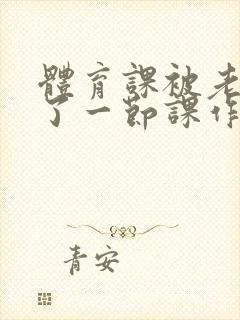 體育課被老
了一節課作
青安